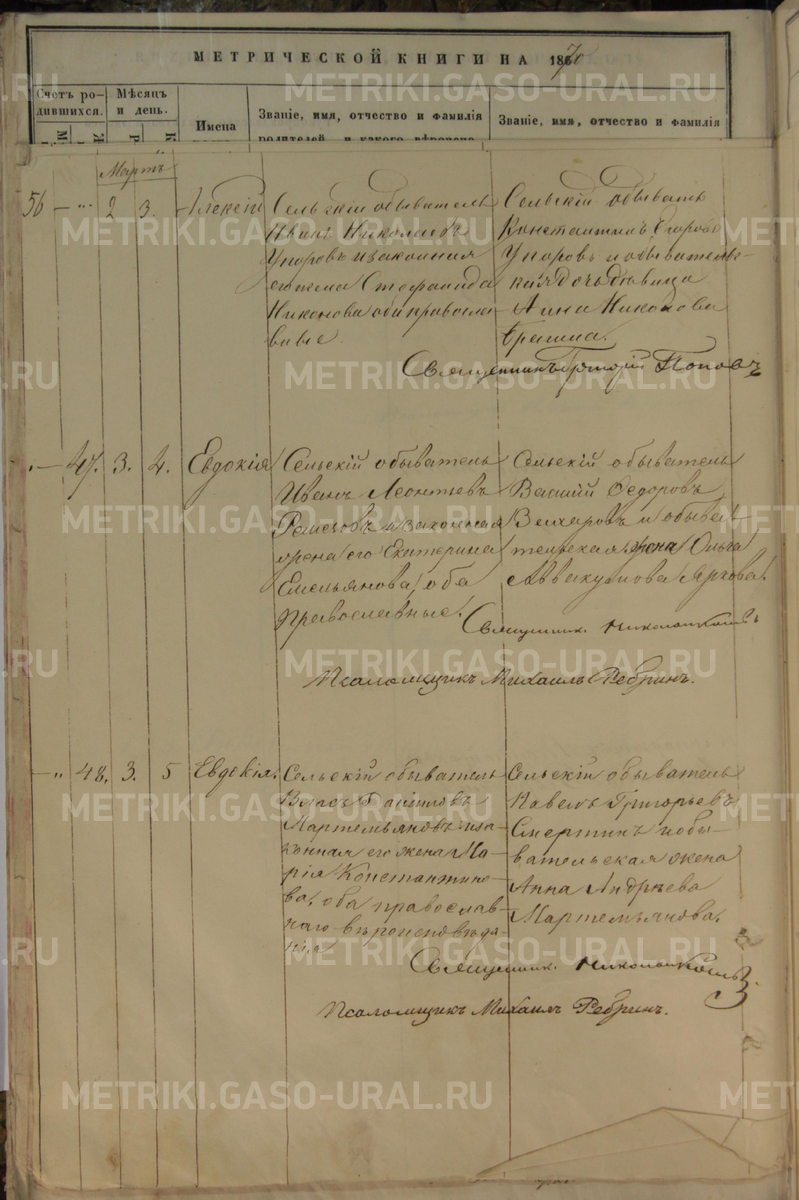 МЕТРИЧЕСКОЙ КНИГИ НА 1870
Счетъ ро-
дившихся.
Мѣсяцъ
и день.
Имена
Званіе, имя, отчество и фамилія
родителей, и какого вѣроиспо
Званіе, имя, отчество и фамилія
Мартъ
56 — „ 2 3. Алексій
Сельскій обыватель
Иванъ Николаевъ
Упоровъ и законная
его жена Стефанида
Никонова оба православ-
ные.
Сельскій обыватель
Константинъ Егоровъ
Упоровъ и обыватель-
ская дочь девица
Анна
Священникъ Григорій Поповъ
„ — 47. 3. 4. Евдокія
Сельскій обыватель
Иванъ Леонтьевъ
Ремезовъ и законная
жена его Екатерина
Емельянова, оба
православные.
Сельскій обыватель
Василій Ѳедоровъ
и обыва-
тельская жена Ольга
Аввакумова Яркова.
Священник.
Псаломщикъ Михаилъ Ребринъ.
— „ 48. 3. 5 Евдокія.
Сельскій обыватель
Мартемьяновъ и за-
конная его жена Ма-
рія Константино-
ва, оба православ-
наго вѣроисповѣда-
нія
Сельскій обыватель
Павелъ Григорьевъ
Смертинъ и обы-
вательская жена
Анна Андрѣева
Мартемьянова.
Священник.
Псаломщикъ Михаилъ Ребринъ.
METRIKI.GASO-URAL.RU